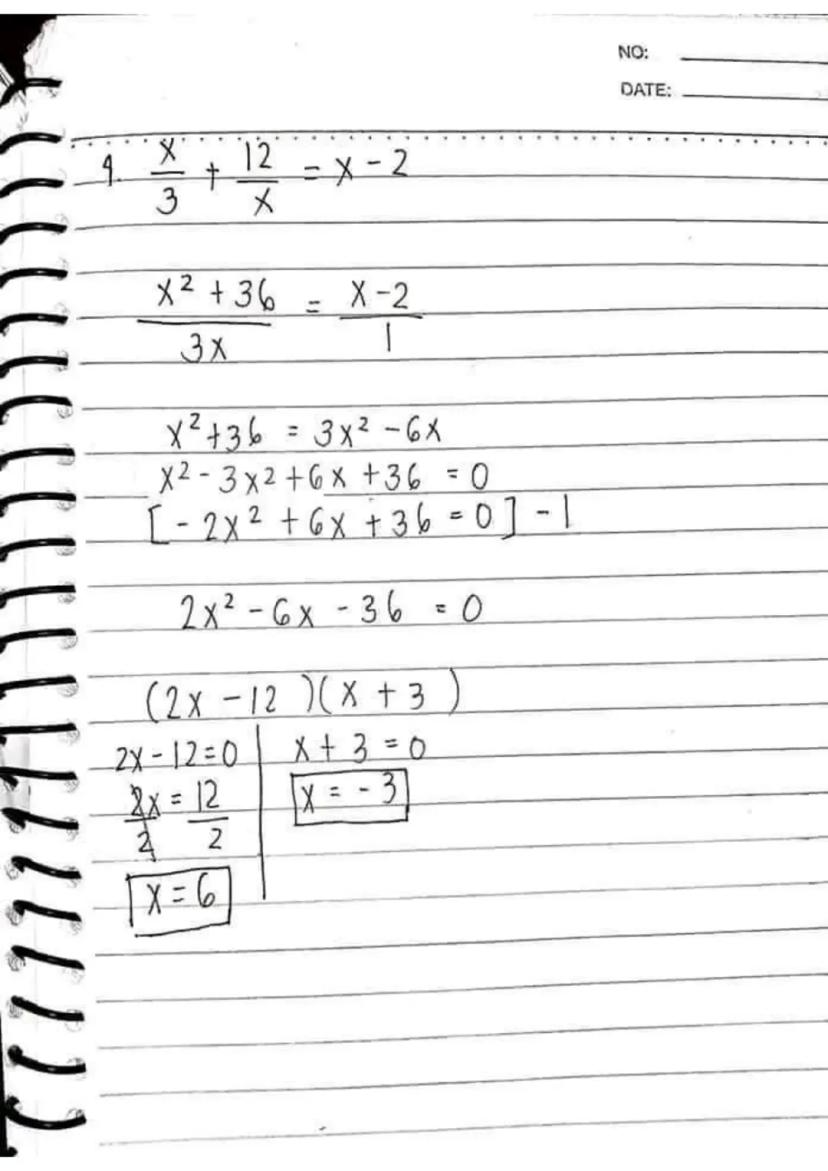 NO:
DATE:
9. x/3 + 12/x = x - 2
x² + 36 / 3x = x - 2 / 1
x² + 36 = 3x² - 6x
x² - 3x² + 6x + 36 = 0
[ - 2x² + 6x + 36 = 0 ] - 1
2x² - 6x - 36 = 0
(2x - 12 )( x + 3 )
2x - 12 = 0 | x + 3 = 0
2x/2 = 12/2 | x = - 3
x = 6